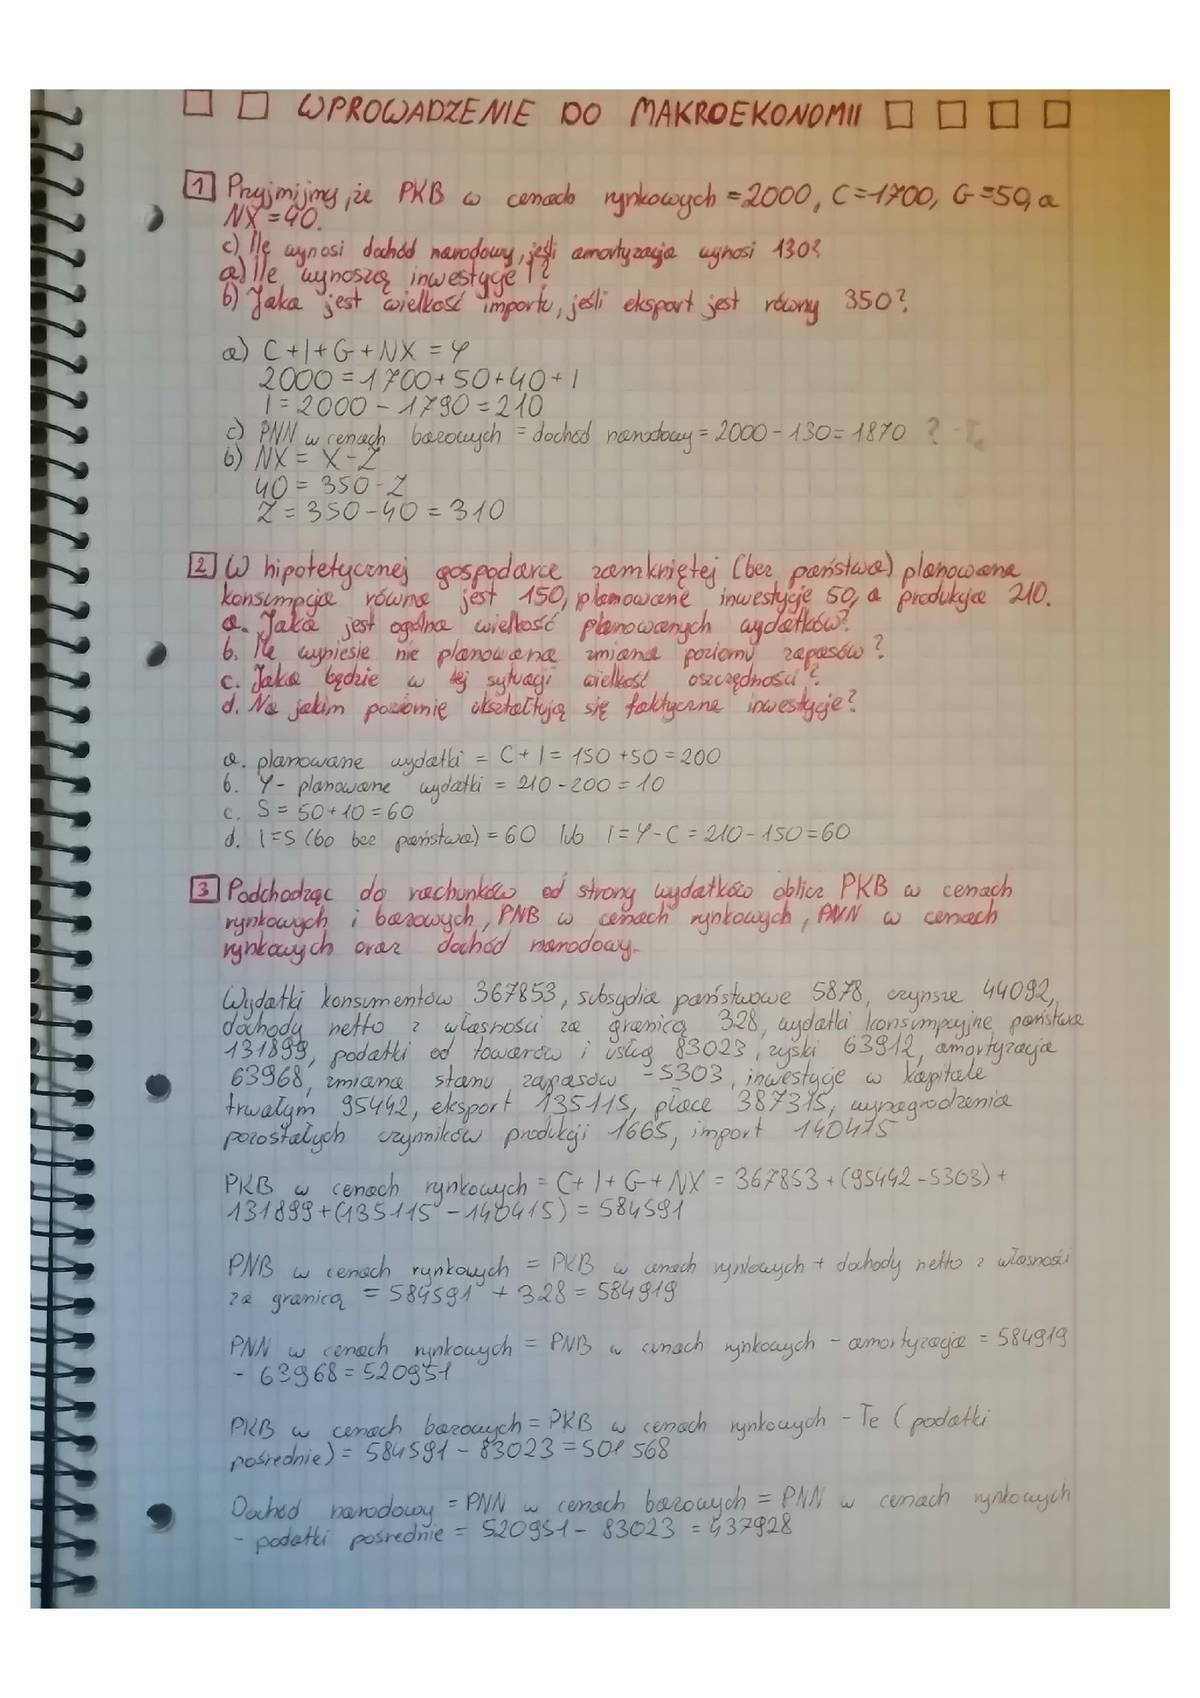 WPROWADZENIE DO MAKROEKONOMII
1 Przyjmijmy, że PKB w cenach rynkowych = 2000, C = 1700, G = 50, a
NX = 40.
c) Ile wynosi dochód narodowy, jeśli amortyzacja wynosi 130?
a) Ile wynoszą inwestycje I?
b) Jaka jest wielkość importu, jeśli eksport jest równy 350?
a) C + I + G + NX = Y
2000 = 1700 + 50 + 40 + I
I = 2000 - 1790 = 210
c) PNN w cenach bazowych = dochód narodowy = 2000 - 130 = 1870 ? - Te
b) NX = X - Z
40 = 350 - Z
Z = 350 - 40 = 310
2 W hipotetycznej gospodarce zamkniętej (bez państwa) planowana
konsumpcja równa jest 150, planowane inwestycje 50, a produkcja 210.
a. Jaka jest ogólna wielkość planowanych wydatków?
b. Ile wyniesie nie planowana zmiana poziomu zapasów?
c. Jaka będzie w tej sytuacji wielkość oszczędności?
d. Na jakim poziomie ukształtują się faktyczne inwestycje?
a. planowane wydatki = C + I = 150 + 50 = 200
b. Y - planowane wydatki = 210 - 200 = 10
c. S = 50 + 10 = 60
d. I = S (bo bez państwa) = 60 lub I = Y - C = 210 - 150 = 60
3 Podchodząc do rachunków od strony wydatków oblicz PKB w cenach
rynkowych i bazowych, PNB w cenach rynkowych, PNN w cenach
rynkowych oraz dochód narodowy.
Wydatki konsumentów 367853, subsydia państwowe 5878, czynsze 44092,
dochody netto z własności za granicą 328, wydatki konsumpcyjne państwa
131899, podatki od towarów i usług 83023, zyski 63912, amortyzacja
63968, zmiana stanu zapasów -5303, inwestycje w kapitale
trwałym 95442, eksport 135115, płace 387315, wynagrodzenia
pozostałych czynników produkcji 1665, import 140415
PKB w cenach rynkowych = C + I + G + NX = 367853 + (95442 - 5303) +
131899 + (135115 - 140415) = 584591
PNB w cenach rynkowych = PKB w cenach rynkowych + dochody netto z własności
za granicą = 584591 + 328 = 584919
PNN w cenach rynkowych = PNB w cenach rynkowych - amortyzacja = 584919
- 63968 = 520951
PKB w cenach bazowych = PKB w cenach rynkowych - Te (podatki
pośrednie) = 584591 - 83023 = 501 568
Dochód narodowy = PNN w cenach bazowych = PNN w cenach rynkowych
- podatki pośrednie = 520951 - 83023 = 437928